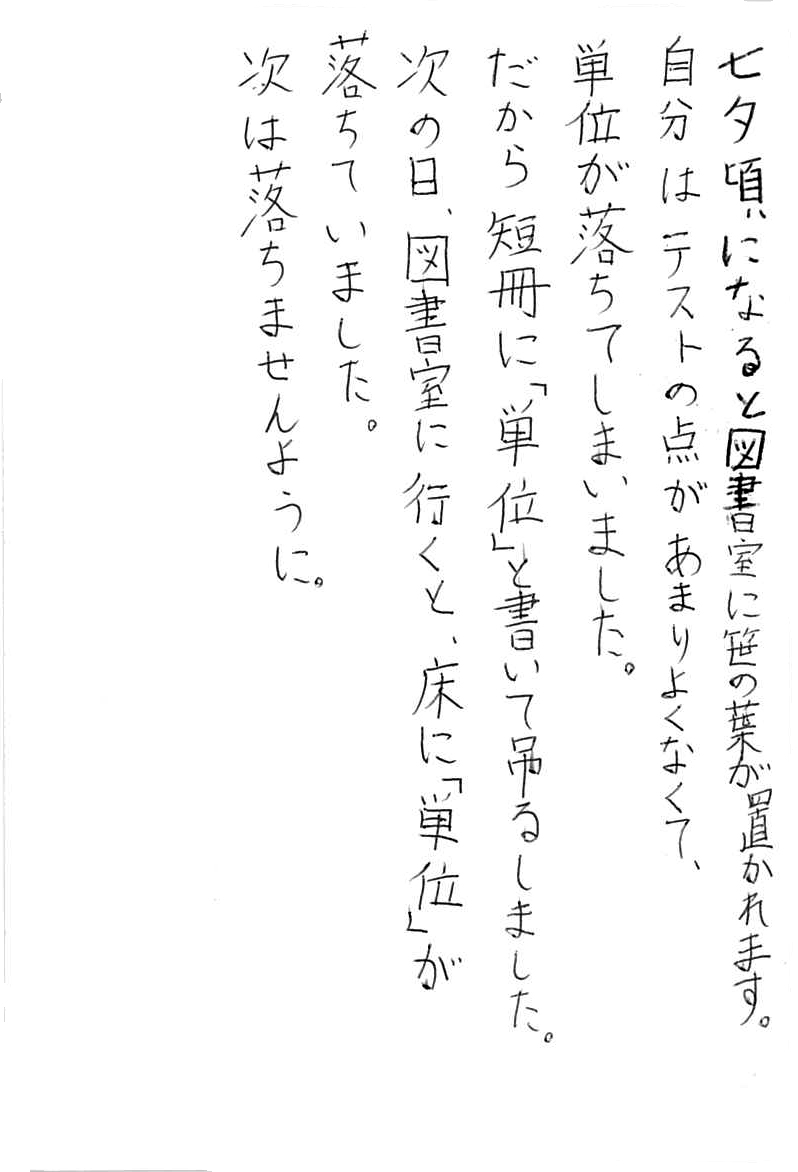 七夕頃になると図書室に笹の葉が置かれます。
自分はテストの点があまりよくなくて、
単位が落ちてしまいました。
だから短冊に「単位」と書いて吊るしました。
次の日、図書室に行くと、床に「単位」が
落ちていました。
次は落ちませんように。